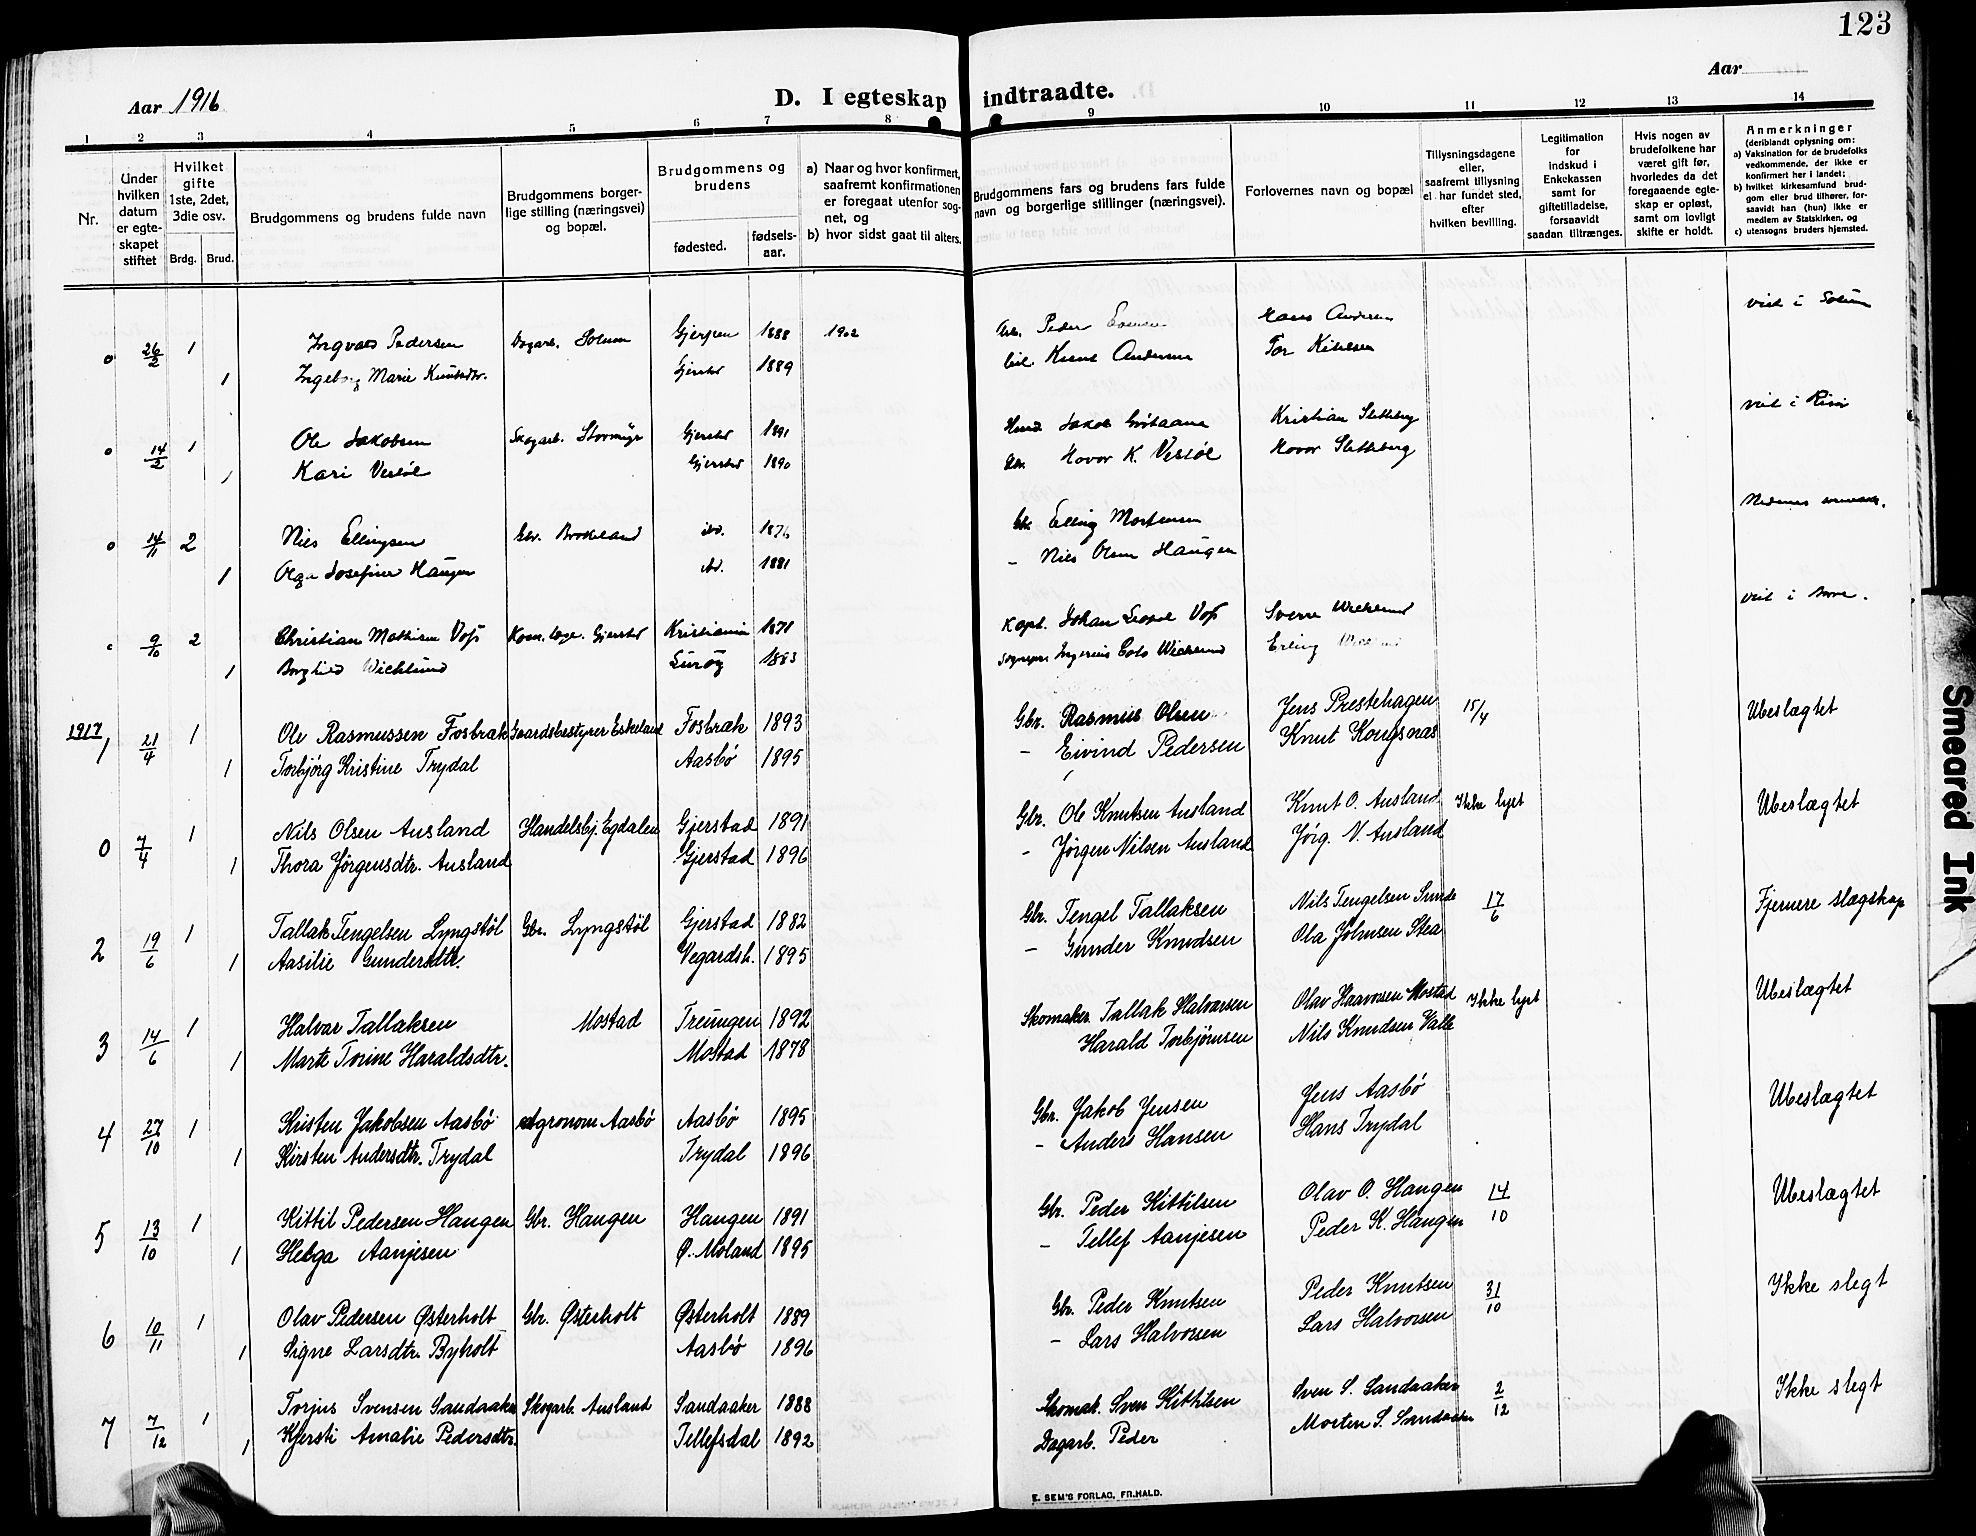 123
Aar 1916
D. I egteskap indtraadte.
Aar
1 2 3 4 5 6 7 8 9 10 11 12 13 14
Nr.
Under hvilken datum er egteskapet stiftet
Hvilket gifte 1ste, 2det, 3die osv.
Brdg. Brud.
Brudgommens og brudens fulde navn
Brudgommens borgerlige stilling (næringsvei) og bopæl.
Brudgommens og brudens
fødested. fødselsaar.
a) Naar og hvor konfirmert, saafremt konfirmationen er foregaat utenfor sognet, og
b) hvor sidst gaat til alters.
Brudgommens fars og brudens fars fulde navn og borgerlige stillinger (næringsvei).
Forlovernes navn og bopæl
Tillysningsdagene eller, saafremt tillysning ei har fundet sted, efter hvilken bevilling.
Legitimation for indskud i Enkekassen samt for giftetilladelse, forsaavidt saadan tiltrænges.
Hvis nogen av brudefolkene har været gift før, hvorledes da det foregaaende egteskap er opløst, samt om lovligt skifte er holdt.
Anmerkninger (deriblandt oplysning om:
a) Vaksination for de brudefolks vedkommende, der ikke er konfirmert her i landet;
b) hvilket kirkesamfund brudgom eller brud tilhører, forsaavidt han (hun) ikke er medlem av Statskirken, og
c) utensogns bruders hjemsted.
0 26/2 1 Ingvald Pedersen Dagarb. Solum Gjerpen 1888 1902 Arb. Peder Hans Andersen viet i Solum
1 Ingeborg Marie Knutsdtr. Gjerstad 1889 Knut Andersen Tor Kittelsen
0 14/2 1 Ole Jakobsen Skogarb. Stormyr Gjerstad 1891 Jakob Kristian Sletteberg viet i Risør
1 Kari Vestøl Gjerstad 1890 Gbr. Hovor K. Vestøl Hovor Sletteberg
0 14/11 2 Niels Ellingsen Gbr. Brokeland ibd. 1876 Gbr. Elling Mortensen Nedenes
1 Olga Josefine Haugen ibd. 1881 - Niels Olsen Haugen
9/10 2 Christian Mathisen Voss Kom. læge. Gjerstad Kristiania 1871 Kapt. Johan Voss Sverre Wicklund viet i
1 Borghild Wicklund Lurøy 1883 Sognepr. Wicklund Erling
1917 1 21/4 1 Ole Rasmussen Fosbræk Gaardsbestyrer Eskeland Fosbræk 1893 Gbr. Rasmus Olsen Jens Prestehagen 15/4 Ubeslægtet
1 Torbjørg Kristine Trydal Aasbø 1895 - Eivind Pedersen Knut Kongsnæs
0 7/4 1 Nils Olsen Ausland Handelsbj. Egdalen Gjerstad 1891 Gbr. Ole Knutsen Ausland Knut O. Ausland Ikke lyst Ubeslægtet
1 Thora Jørgensdtr. Ausland Gjerstad 1896 - Jørgen Nilsen Ausland Jørg. N. Ausland
2 19/6 1 Tallak Tengelsen Lyngstøl Gbr. Lyngstøl Gjerstad 1882 Gbr. Tengel Tallaksen Nils Tengelsen Sunde 17/6 Fjernere slægskap
1 Aasilie Gundersdtr. Vegardsh. 1895 - Gunder Knudsen Ola Johnsen Stea
3 14/6 1 Halvar Tallaksen Mostad Treungen 1892 Skomaker Tallak Halvorsen Olav Haavorsen Mostad Ikke lyst Ubeslægtet
1 Marte Torine Haraldsdtr. Mostad 1878 Harald Torbjørnsen Nils Knudsen Valle
4 27/10 1 Kristen Jakobsen Aasbø Agronom Aasbø Aasbø 1895 Gbr. Jakob Jensen Jens Aasbø Ubeslægtet
1 Kirsten Andersdtr. Trydal Trydal 1896 - Anders Hansen Hans Trydal
5 13/10 1 Kittil Pedersen Haugen Gbr. Haugen Haugen 1891 Gbr. Peder Kittilsen Olav O. Haugen 14/10 Ubeslægtet
1 Helga Aanjesen Ø. Moland 1895 - Tellef Aanjesen Peder K. Haugen
6 10/11 1 Olav Pedersen Østerholt Gbr. Østerholt Østerholt 1889 Gbr. Peder Knutsen Peder Knutsen 31/10 Ikke slegt
1 Signe Larsdtr. Byholt Aasbø 1896 - Lars Halvorsen Lars Halvorsen
7 7/12 1 Torjus Svensen Sandaaker Skogarb. Ausland Sandaaker 1888 Skomak. Sven Kittilsen Sven S. Sandaaker 2/12 Ikke slegt
1 Kjersti Amalie Pedersdtr. Tellefsdal 1892 Dagarb. Peder Morten S. Sandaaker
E. SEM'S FORLAG, FR.HALD.
Smeared Ink